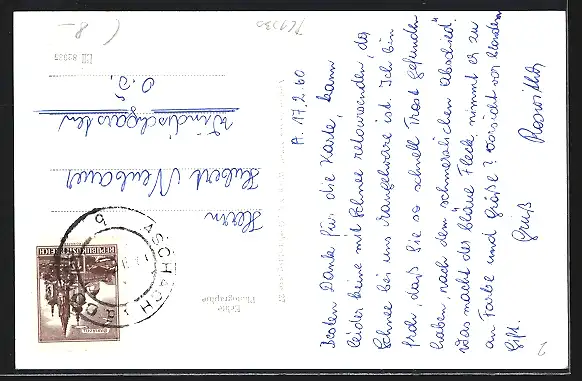 A. 17.2.60
Besten Dank für die Karte, kann
leider keine mit Schnee retoursenden, da
Schnee bei uns Mangelware ist. Ich bin
froh, daß Sie so schnell Trost gefunden
haben, nach dem schmerzlichen Abschied.
Was macht der blaue Fleck, nimmt er zu
an Farbe und Größe? Vorsicht vor blondem
Gift.
Gruß
Roswitha
Herrn
Hubert Neubauer
Windischgarsten
O.Ö.
ASCHACH
REPUBLIK ÖSTERREICH
Echte
Photographie